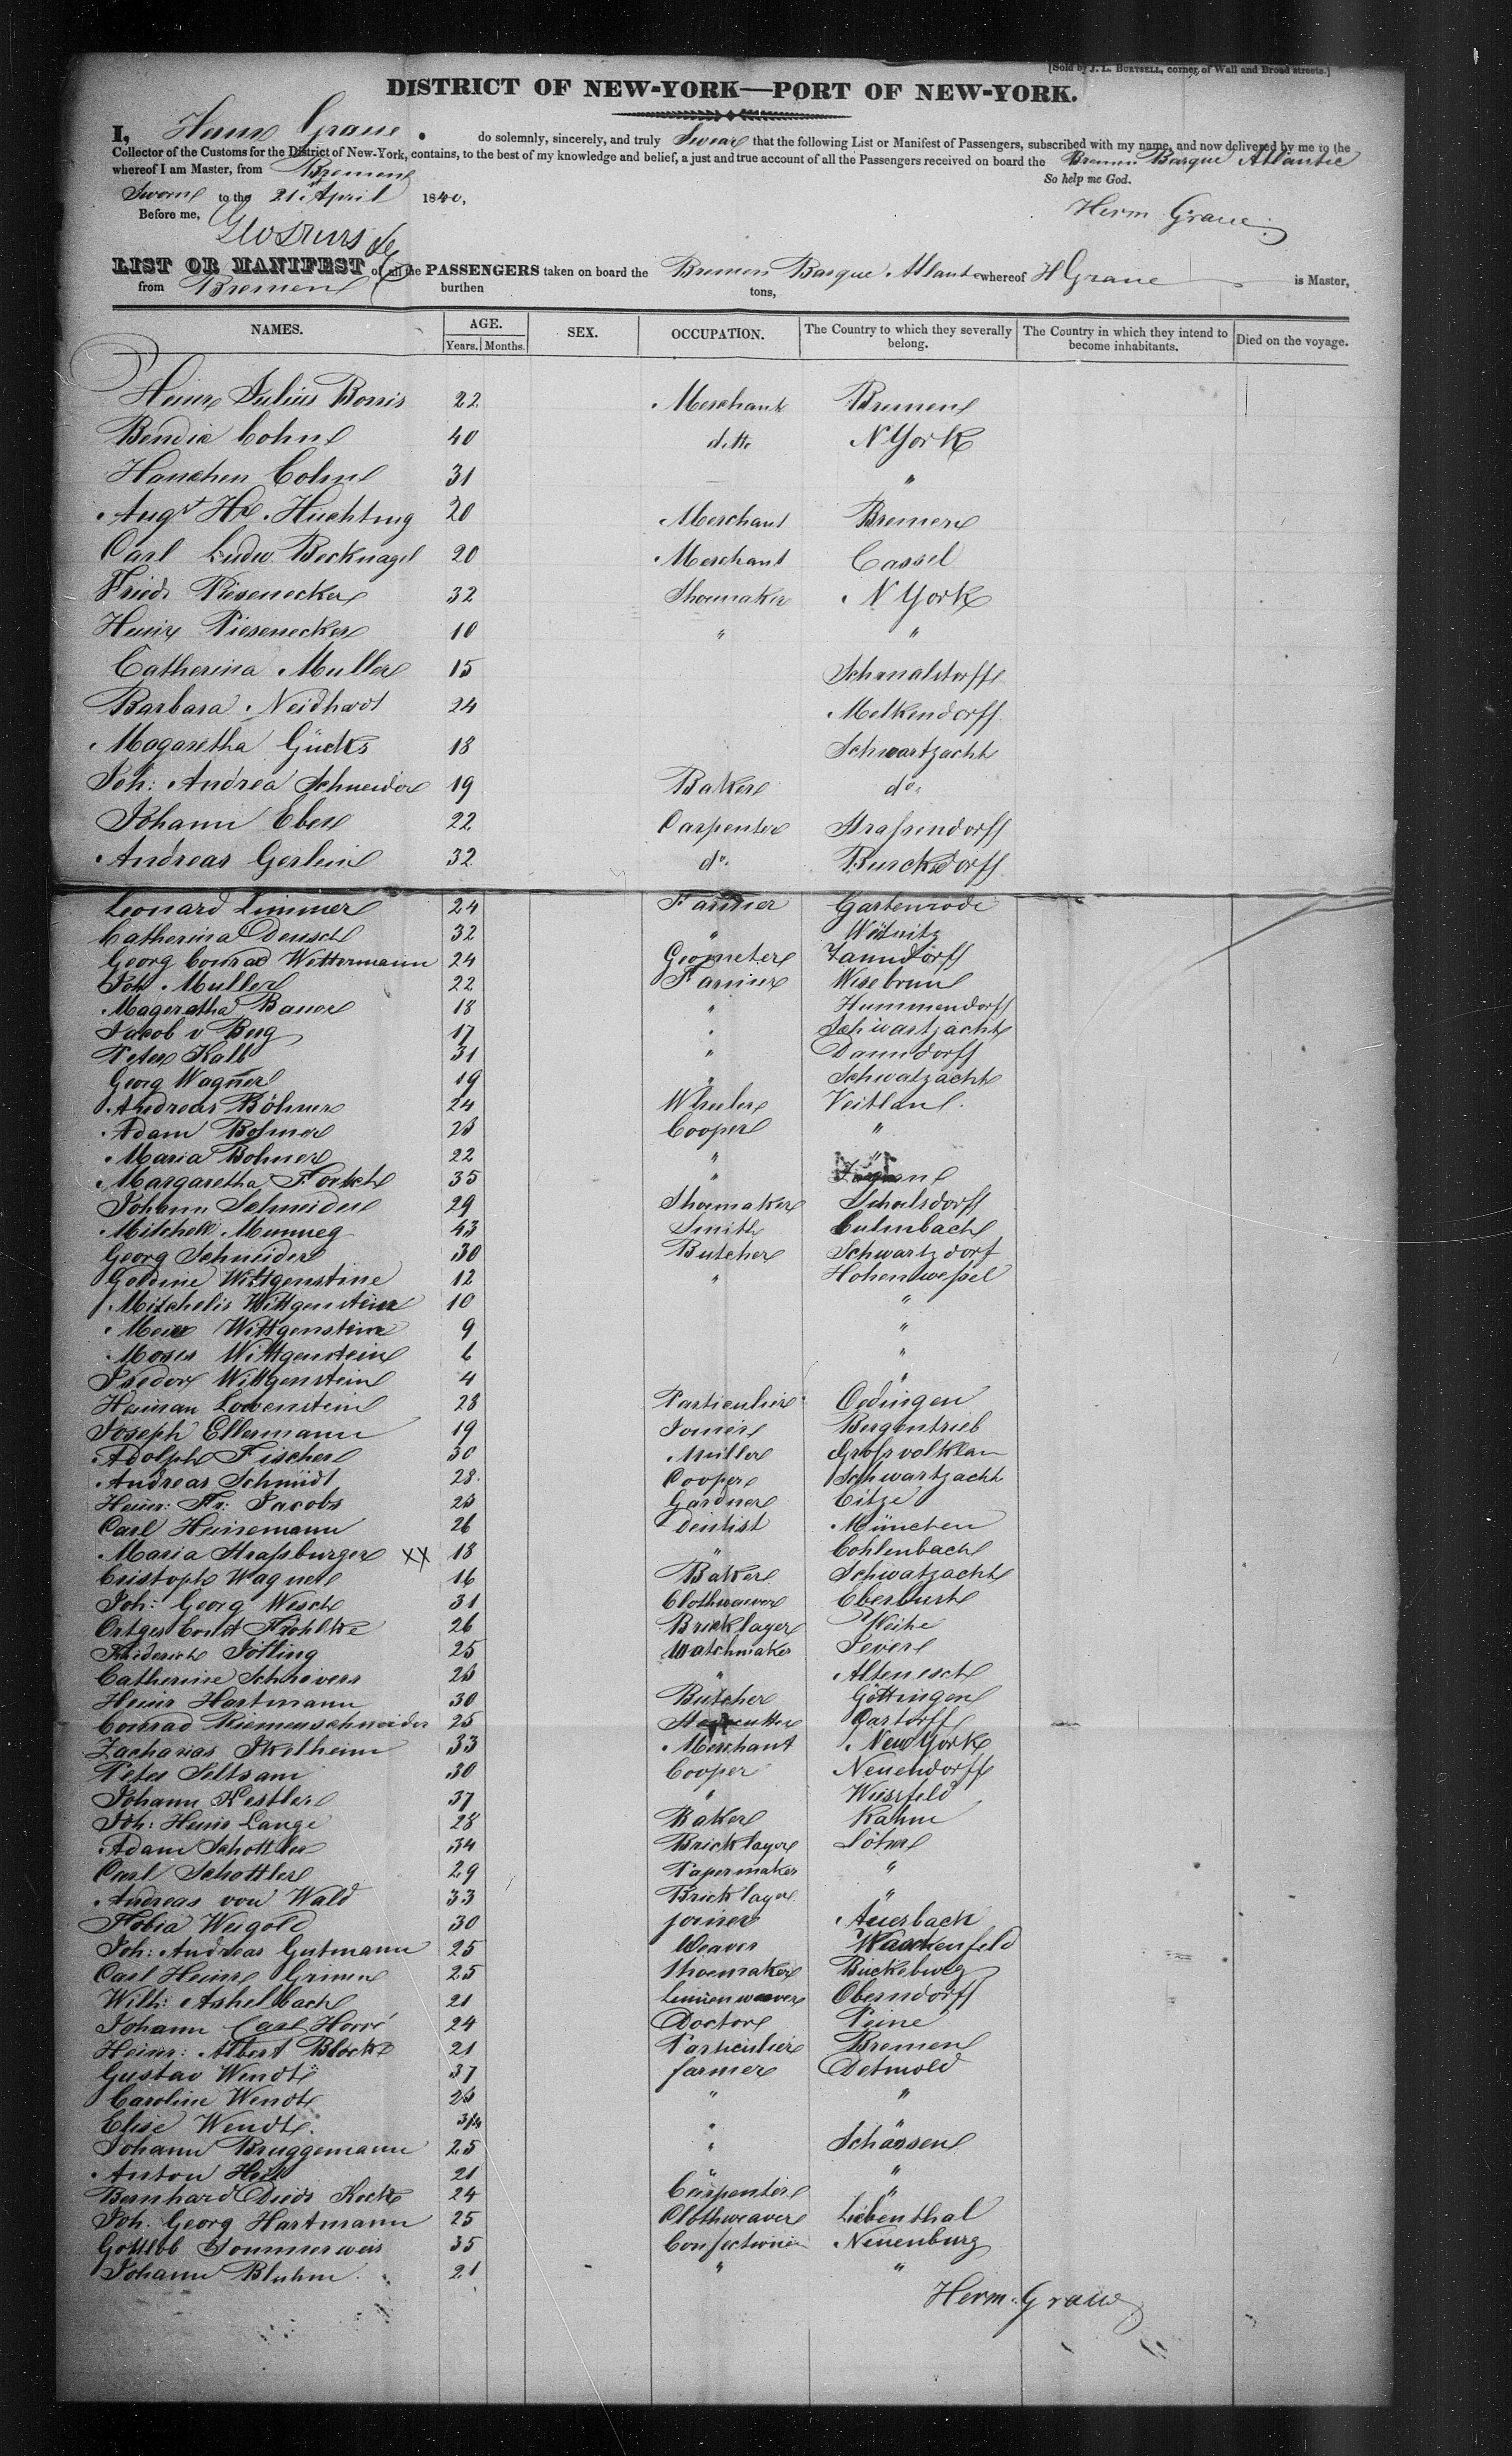 [Sold by J. L. BURTSELL, corner of Wall and Broad streets.]
DISTRICT OF NEW-YORK—PORT OF NEW-YORK.
I, Herm Graue do solemnly, sincerely, and truly Swear that the following List or Manifest of Passengers, subscribed with my name, and now delivered by me to the
Collector of the Customs for the District of New-York, contains, to the best of my knowledge and belief, a just and true account of all the Passengers received on board the Bremen Barque Atlantic
whereof I am Master, from Bremen
So help me God.
Sworn to the 21 April 1840,
Herm Graue
Before me,
LIST OR MANIFEST of all the PASSENGERS taken on board the Bremen Barque Atlantic whereof H Graue is Master,
from Bremen burthen tons,
NAMES. AGE. SEX. OCCUPATION. The Country to which they severally belong. The Country in which they intend to become inhabitants. Died on the voyage.
Years. Months.
Heinr Julius Borris 22 Merchant Bremen
Bendic Cohn 40 ditto N York
Hanchen Cohn 31 "
Augt Hr. Huchting 20 Merchant Bremen
Carl Ludw. Recknagel 20 Merchant Cassel
Friedr Piesenecker 32 Shoemaker N York
Heinr Piesenecker 10 " "
Catherina Muller 15 Schmalstorff
Barbara Neidhardt 24 Melkendorff
Magaretha Gücks 18 Schwartzacht
Joh: Andrea Schneider 19 Baker do.
Johann Eber 22 Carpenter Strassendorff
Andreas Gerlein 32 do. Burcksdorff
Leonard Limmer 24 Farmer Gartenrode
Catherina Deusch 32 " Weisnitz
Georg Conrad Wettermann 24 Geometer Tanndorff
Joh. Muller 22 Farmer Wisebrun
Mageratha Bauer 18 " Hummendorff
Jacob v Berg 17 " Schwartzacht
Peter Kalb 31 " Danndorff
Georg Wagner 19 " Schwatzacht
Andreas Böhmer 24 Wheeler Veitlan
Adam Bohmer 28 Cooper "
Maria Bohmer 22 " "
Margaretha Foertsch 35 "
Johann Schneider 29 Shoemaker Schulsdorff
Mitchell Munneg 43 Smith Culmbach
Georg Schneider 30 Butcher Schwartzdorf
Goldine Wittgenstine 12 " Hohenwessel
Mitchelis Wittgenstein 10 "
Meier Wittgenstein 9 "
Moses Wittgenstein 6 "
Isedor Wittgenstein 4 "
Heiman Lowenstein 28 Particulier Oedingen
Joseph Ellermann 19 Joiner Bergentrieb
Adolph Fischer 30 Müller Grossvolklan
Andreas Schmidt 28 Cooper Schwartzacht
Heinr: Fr: Jacobs 28 Gardner Citze
Carl Heinemann 26 Dentist München
Maria Strassburger XX 18 " Cohlenbach
Cristoph Wagner 16 Baker Schwatzacht
Joh: Georg Wesch 31 Clothweaver Ebersbusch
Ortges Frohlke 26 Bricklayer
Friederich Jölling 25 Watchmaker Jever
Catherine Schrivers 28 " Altenesch
Heinr Hartmann 30 Butcher Göttingen
Conrad Riemenschneider 25 Gartorff
Zacharias Ikelheim 33 Merchant New York
Peter Seltsam 30 Cooper Neuendorff
Johann Kestler 37 " Wiesfeld
Joh: Heinr Lange 28 Baker Rahm
Adam Schottler 34 Bricklayer Lötne
Carl Schottler 29 Papermaker "
Andreas von Wald 33 Bricklayer "
Tobia Weigold 30 joiner Auerbach
Joh: Andreas Gutmann 25 Weaver Waschenfeld
Carl Heinr Grimm 25 Shoemaker Buckeburg
Wilh: Ashelbach 21 Linnenweaver Oberndorff
Johann Carl Horré 24 Doctor Peine
Heinr: Albert Block 21 Particulier Bremen
Gustav Wendt 37 farmer Detmold
Caroline Wendt 28 " "
Elise Wendt. 3/4 "
Johann Bruggemann 25 " Schassen
Anton Heil 21 " "
Bernhard Diedr Kock 24 Carpenter "
Joh. Georg Hartmann 25 Clothweaver Liebenthal
Gottlob Sommerweis 35 Confectioner Neuenburg
Johann Bluhm. 21 " "
Herm. Graue